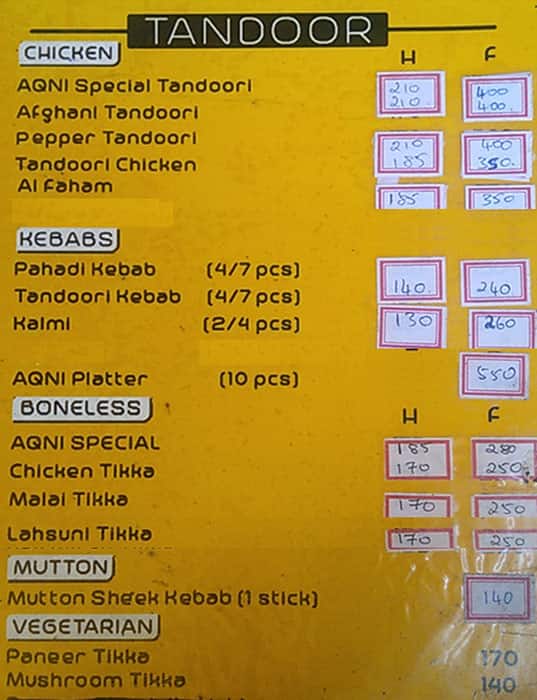 TANDOOR
CHICKEN H F
AQNI Special Tandoori 210 400
Afghani Tandoori 210 400
Pepper Tandoori 210 400
Tandoori Chicken 185 350
Al Faham 185 350
KEBABS
Pahadi Kebab (4/7 pcs)
Tandoori Kebab (4/7 pcs) 140 240
Kalmi (2/4 pcs) 130 260
AQNI Platter (10 pcs) 550
BONELESS H F
AQNI SPECIAL 185 280
Chicken Tikka 170 250
Malai Tikka 170 250
Lahsuni Tikka 170 250
MUTTON
Mutton Sheek Kebab (1 stick) 140
VEGETARIAN
Paneer Tikka 170
Mushroom Tikka 140